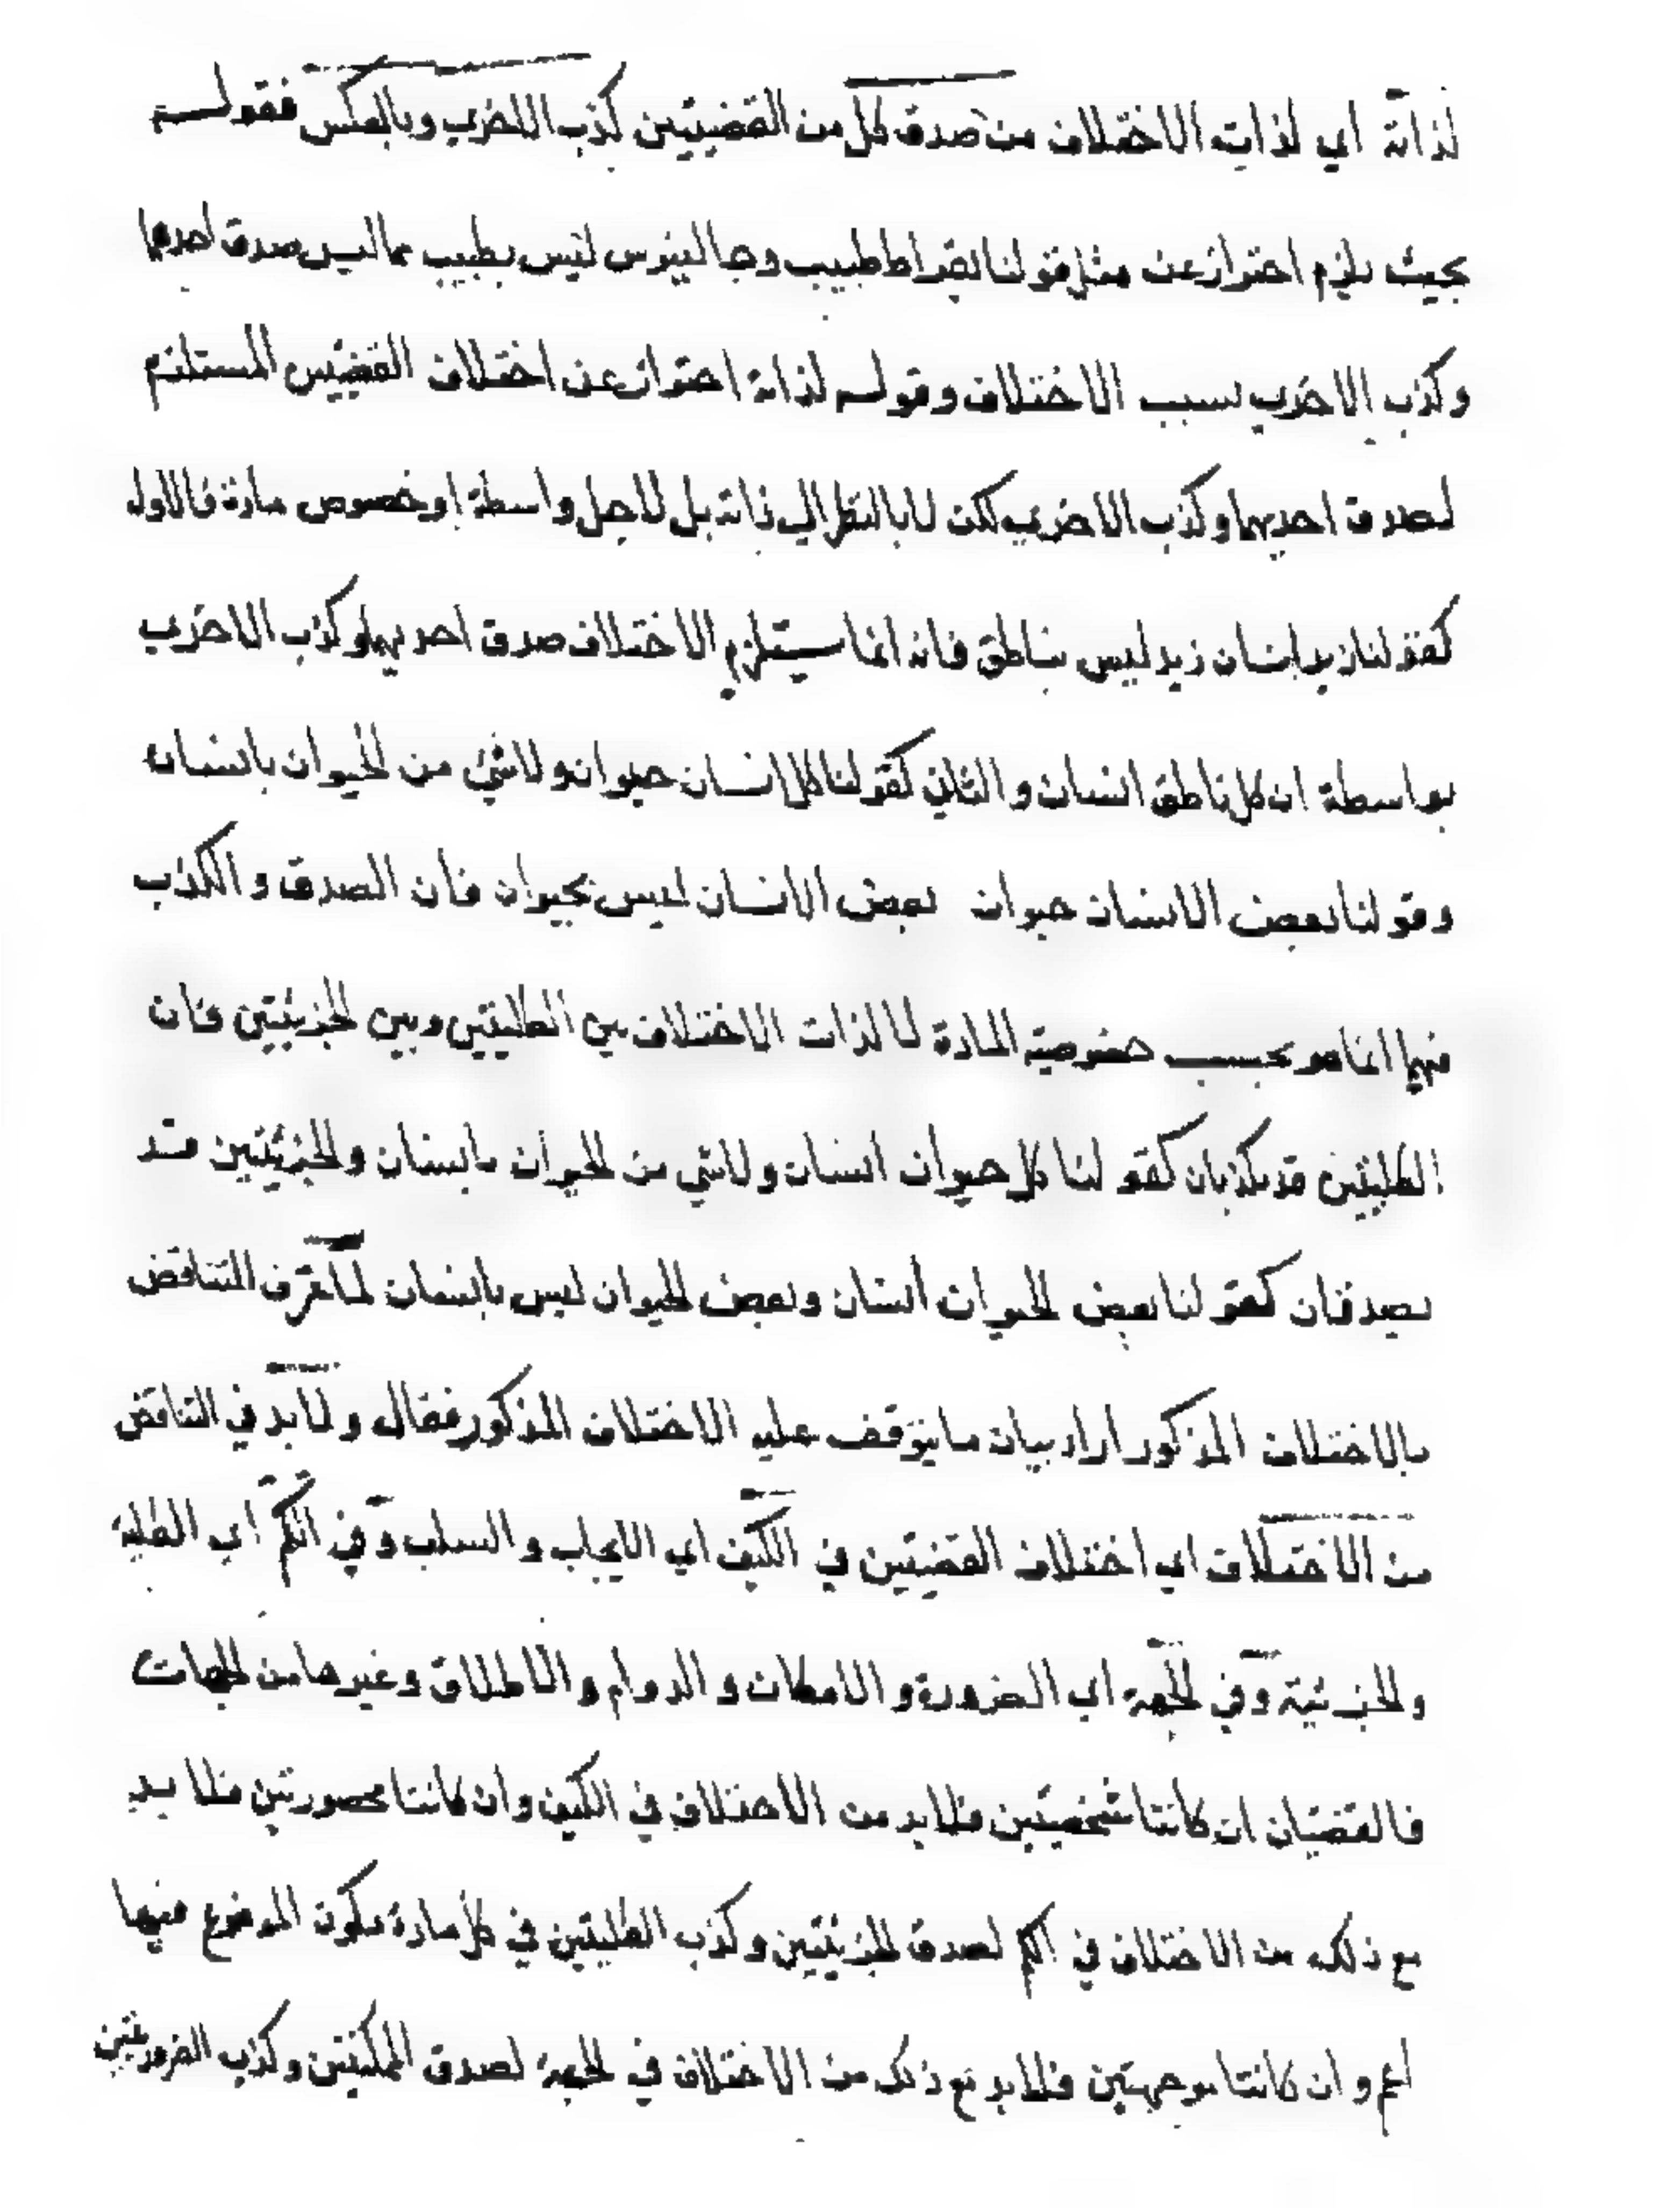 لذاته اي لذات الاختلاف من صدق كل من القضيتين كذب الاخري وبالعكس فقوله
بحيث يلزم احتراز عن مثل قولنا بقراط طبيب وجالينوس ليس بطبيب مما ليس صدق احدهما
وكذب الاخري بسبب الاختلاف وقوله لذاته احتراز عن اختلاف القضيتين المستلزم
لصدق احديهما وكذب الاخري لكن لا بالنظر الي ذاته بل لاجل واسطة او خصوص مادة فالاول
كقولنا زيد انسان زيد ليس بناطق فانه انما يستلزم الاختلاف صدق احديهما وكذب الاخري
بواسطة ان كل ناطق انسان والثاني كقولنا كل انسان حيوان ولا شئ من الحيوان بانسان
وقولنا بعض الانسان حيوان بعض الانسان ليس بحيوان فان الصدق والكذب
فيهما انما هو بحسب خصوصية المادة لا لذات الاختلاف بين الكليتين وبين الجزئيتين فان
الكليتين قد يكذبان كقولنا كل حيوان انسان ولا شي من الحيوان بانسان والجزئيتين قد
يصدقان كقولنا بعض الحيوان انسان وبعض الحيوان ليس بانسان لما عرف التناقض
بالاختلاف المذكور اراد بيان ما يتوقف عليه الاختلاف المذكور فقال ولا بد في التناقض
من الاختلاف اي اختلاف القضيتين في الكيف اي الايجاب والسلب وفي الكم اي الكلية
والجزئية وفي الجهة اي الضرورة والامكان والدوام والاطلاق وغيرها من الجهات
فالقضيتان ان كانتا شخصيتين فلا بد من الاختلاف في الكيف وان كانتا محصورتين فلا بد
مع ذلك من الاختلاف في الكم لصدق الجزئيتين وكذب الكليتين في كل مادة يكون الموضوع فيها
اعم وان كانتا موجهتين فلا بد مع ذلك من الاختلاف في الجهة لصدق الممكنتين وكذب الضروريتين